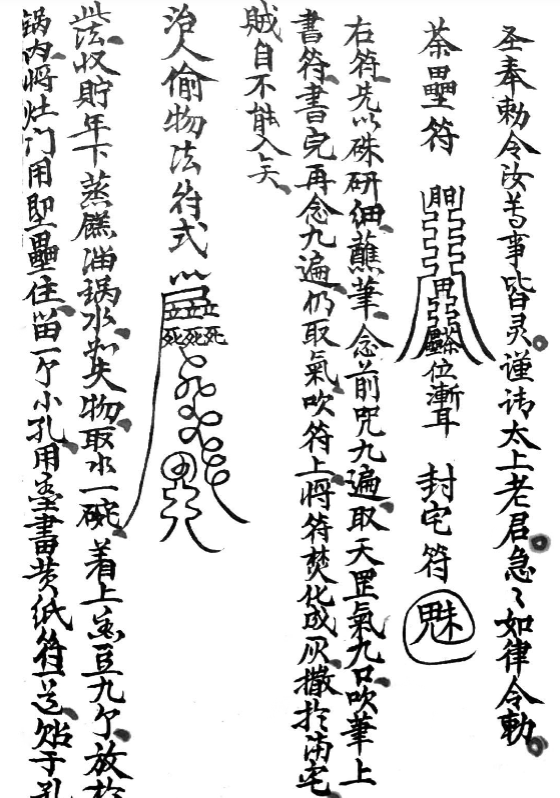 圣奉勅令汝等事皆灵谨请太上老君急〻如律令勅
荼壘符 位漸耳 封宅符
右符先以硃研细蘸筆念前咒九遍取天罡氣九口吹筆上
書符書完再念九遍仍取氣吹符上將符焚化成灰撒扵满宅
賊自不能入矣
治人偷物法符式
此法收貯年下蒸饃溜锅水如失物取水一碗着上黑豆九个放扵
锅内将灶门用壘住留一个小孔用墨畵黄纸符一道贴于孔